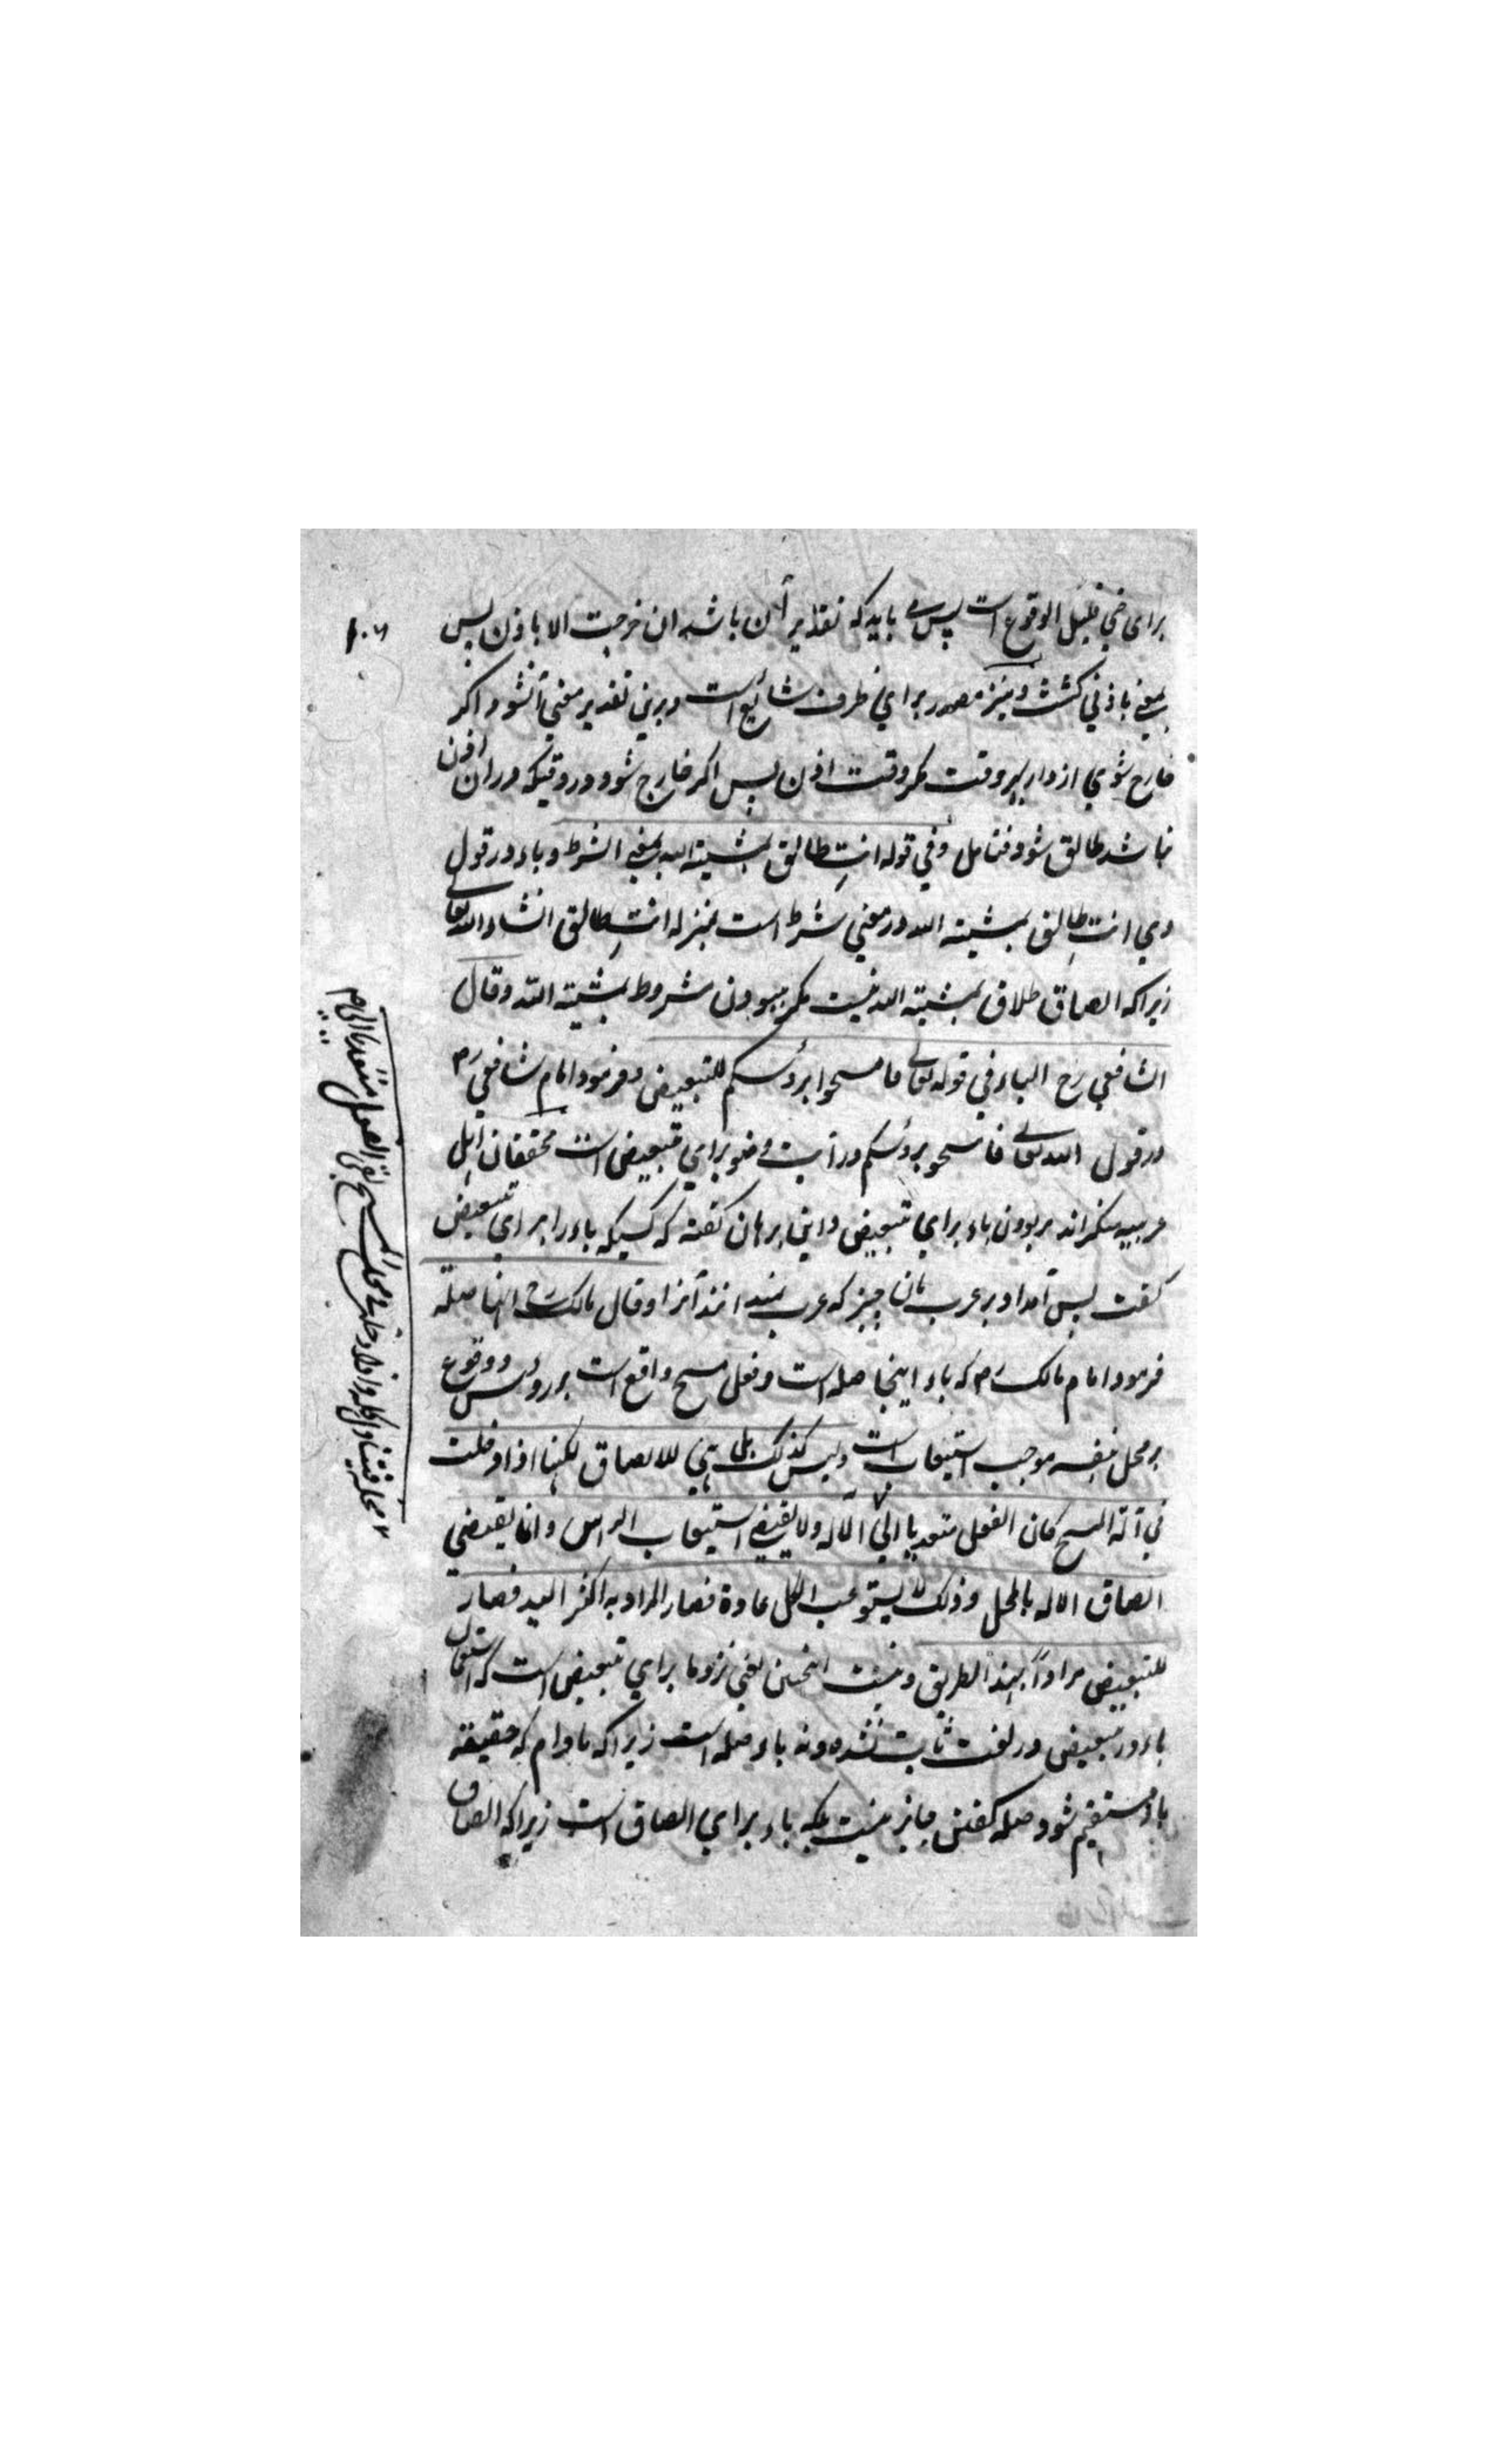 ۱۰۶
برای ضی قلیل الوقوع است پس می باید که تقدیر آن باشد ان خرجت الا باذن پس
بمعنی باذنی گشت و نیز مصدر برای ظرف شائع است و برین تقدیر معنی آنشود اکر
خارج شوی از دار بهر وقت مکر وقت اذن پس اکر خارج شود در وقتیکه در ان اذن
نباشد طالق شود فتامل وفی قوله انتِ طالق بمشیته الله بمعنی الشرط و باء در قول
وی انتِ طالق بمشیته الله در معنی شرط است بمنزله انتِ طالق انشاء الله تعالی
زیرا که الصاق طلاق بمشیته الله نیست مکر ببودن مشروط بمشیته الله وقال
الشافعی رح الباء فی قوله تعالی فامسحوا برؤسکم للتبعیض و فرمود امام شافعی رح
در قول الله تعالی فامسحو برؤسکم در آیت وضو برای تبعیض است محققان اهل
عربیه منکراند بر بودن باء برای تبعیض و ابن برهان کفته که کسیکه باء را برای تبعیض
کفت پس آمد او بر عرب بان چیز که عرب نمیدانند آنرا وقال مالک رح انها صلة
فرمود امام مالک رح که باء اینجا صله است و فعل مسح واقع است بر رؤس و وقوع
بر محل بنفسه موجب استیعاب است ولیس کذلک بل هی للالصاق لکنها اذا دخلت
فی آلة المسح کان الفعل متعدیا الی الآله ولا یقتضی استیعاب الراس وانما یقتضی
الصاق الاله بالمحل وذلک لا یستوعب الکل عادة فصار المراد به اکثر الید فصار
للتبعیض مرادًا بهذا الطریق و نیست اینچنین یعنی نزد ما برای تبعیض است که استعمال
باء در تبعیض در لغت ثابت نشده و نه باء صله است زیرا که مادام که حقیقة
باء مستقیم شود صله کفتن جایز نیست بلکه باء برای الصاق است زیرا که الصاق
محله فتناول کله واذا دخلت فی محل المسح بقی الفعل متعدیا الی